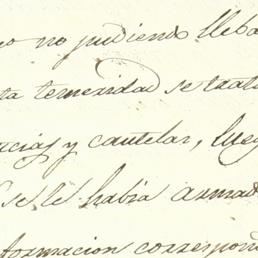 no pudiendo lleba
ta temeridad se trata
cias y cautelar, lueg
se le habia armad
formacion correspond